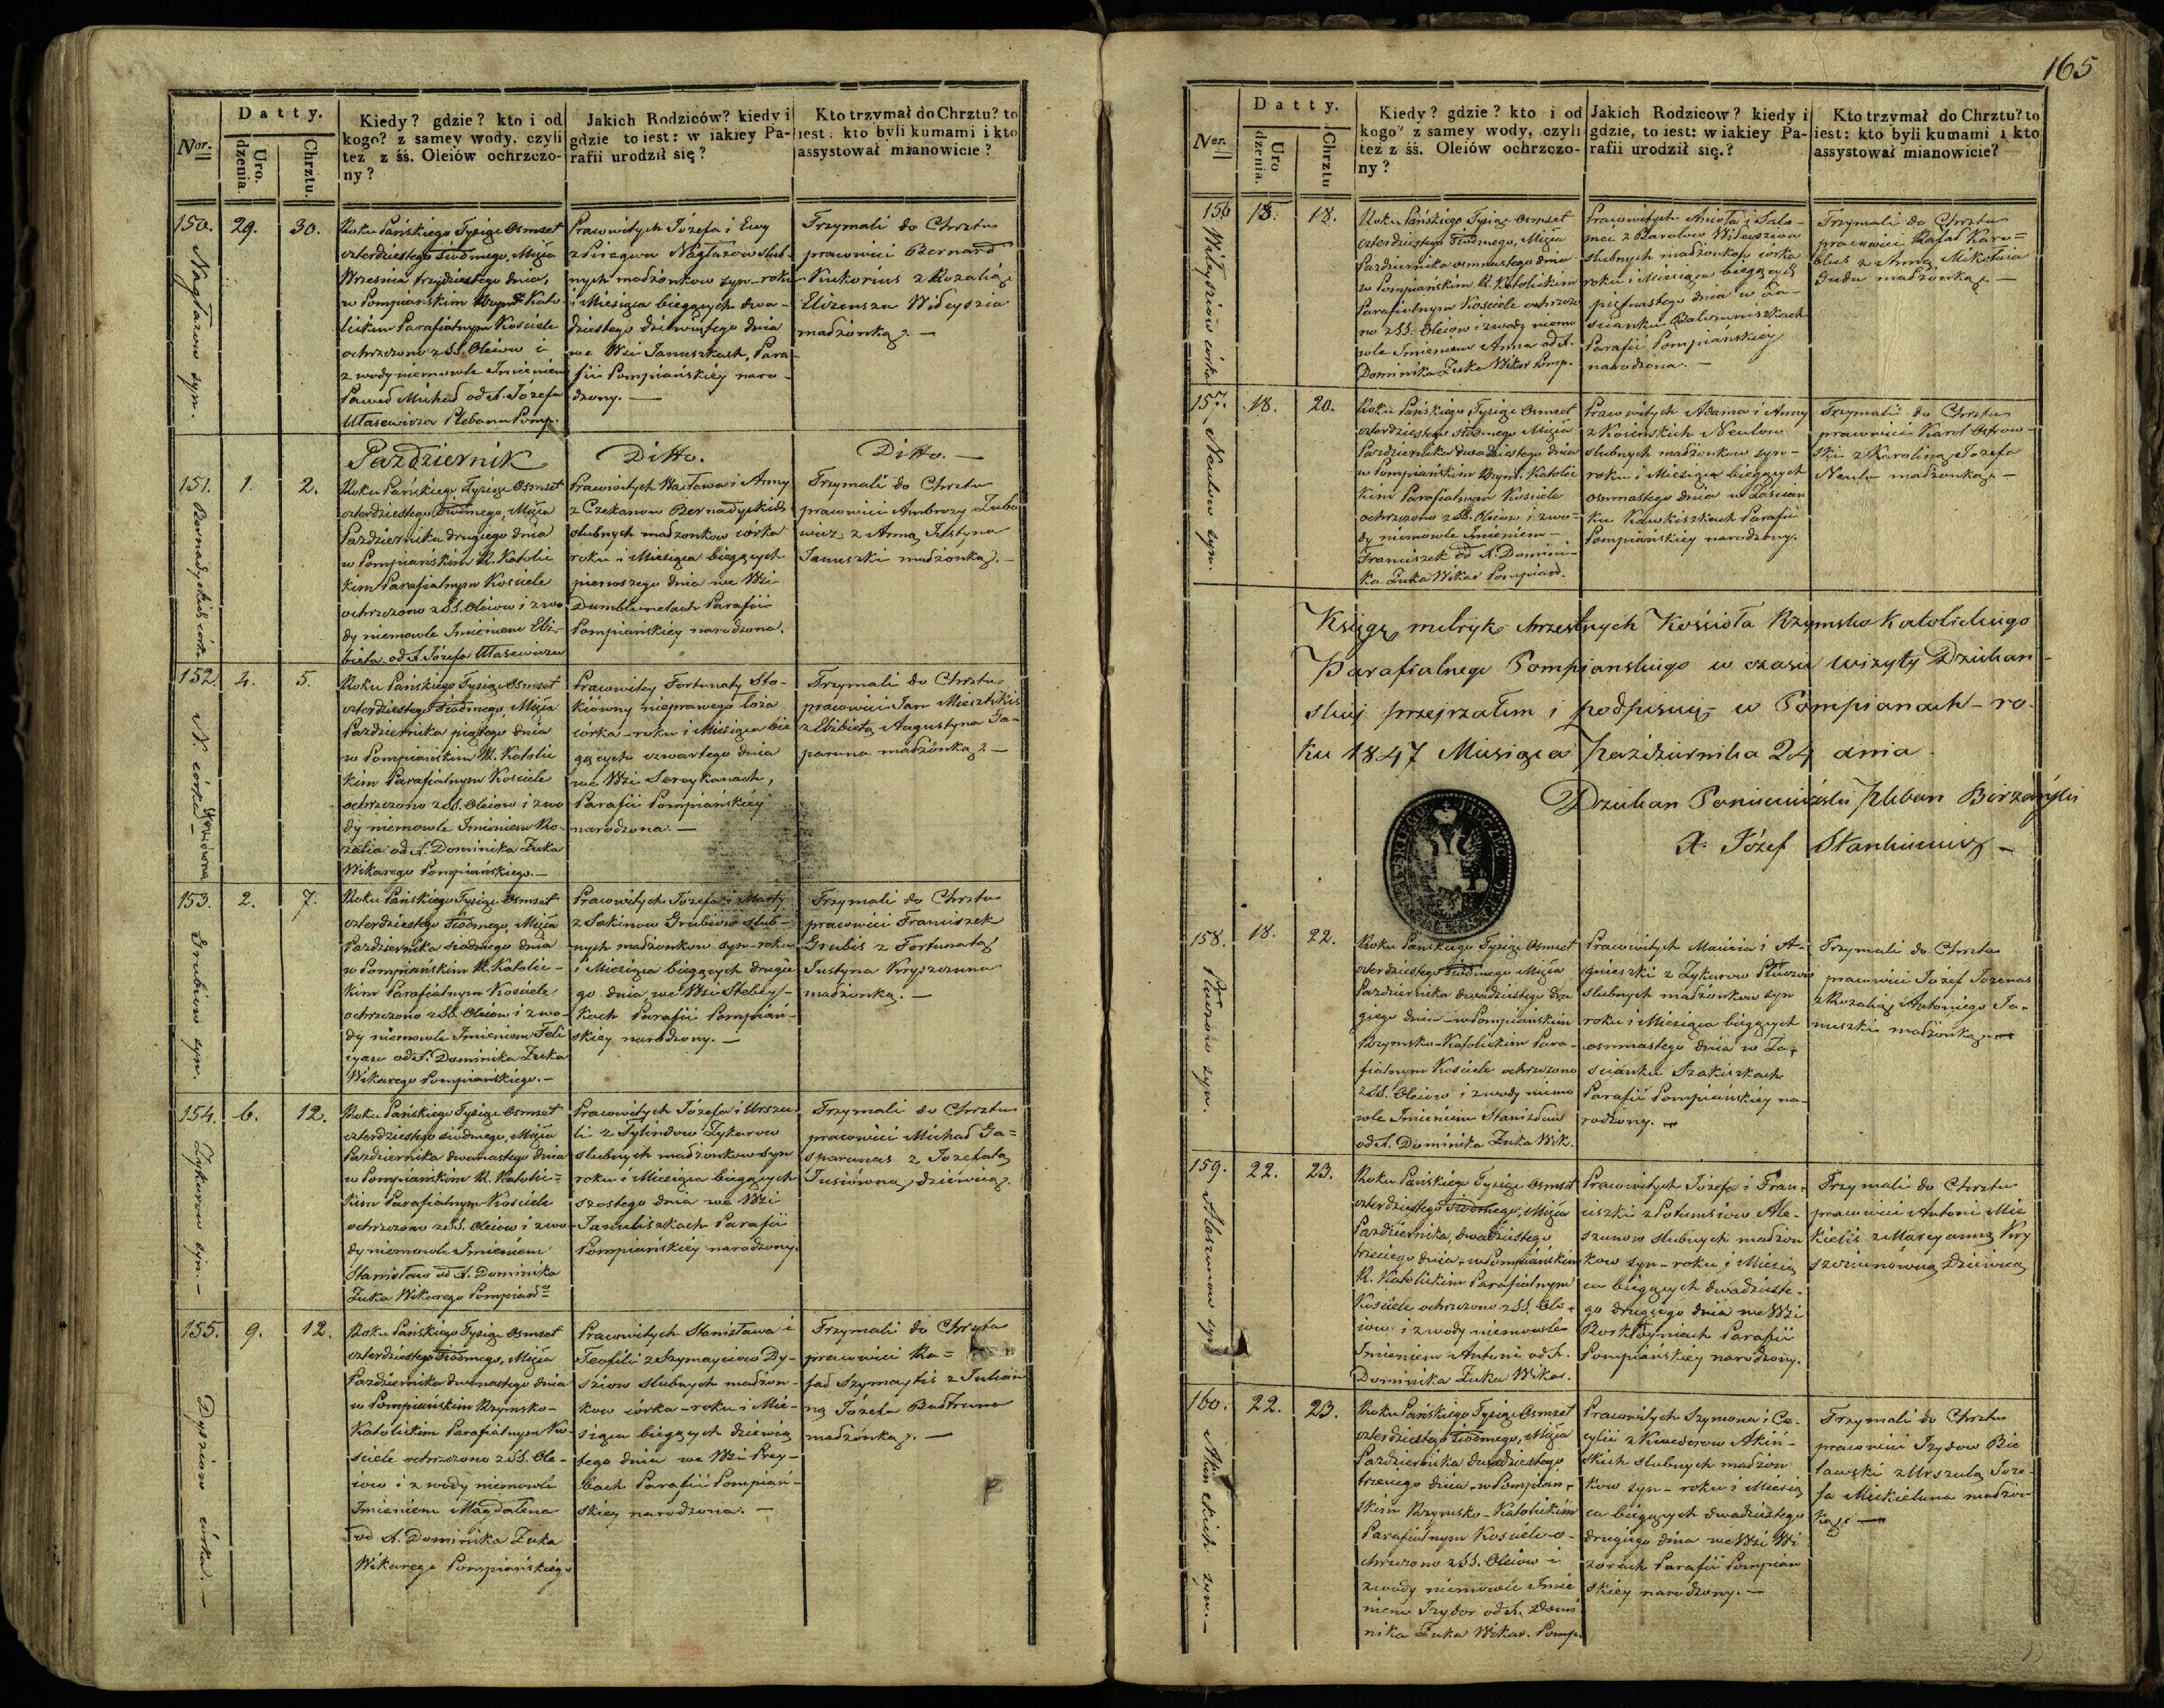 165
Datty.
Ner.
Uro.
dzenia.
Chrztu.
Kiedy? gdzie? kto i od
kogo? z samey wody, czyli
też z śś. Oleiów ochrzczo-
ny?
Jakich Rodziców? kiedy i
gdzie to iest: w iakiey Pa-
rafii urodził się?
Kto trzymał do Chrztu? to
iest: kto byli kumami i kto
assystował mianowicie?
150.
29.
30.
Roku Pańskiego Tysiąc Osmset
czterdziestego siódmego, Mięsiąca
Września trzydziestego dnia,
w Pompiańskim Rzym: Kato
lickim Parafialnym Kościele
ochrzczono z SS. Oleiów i
z wody niemowle Imieniem
Paweł Michał od X. Józefa
Własewicza Plebana Pomp.
Pracowitych Józefa i Ewy
ślub-
nych małżonkow syn - roku
i Miesiąca bieżących dwu-
dziestego dziewiątego dnia
we Wsi Januszkach, Para
fii Pompiańskiéy naro-
dzony. —
Trzymali do Chrztu
pracowici Bernard
Kukorius z Rozalią
małżonką. —
Październik
Ditto.
Ditto. —
151.
1.
2.
Roku Pańskiego Tysiąc Osmset
czterdziestego siódmego, Mięsiąca
Października drugiego dnia
w Pompiańskim R. Katolic
kim Parafialnym Kościele
ochrzczono z SS. Oleiów i z wo
dy niemowle Imieniem Elż-
bieta od X. Józefa Własewicza
Pracowitych Wacława i Anny
z Czekanow Bernadyckich
ślubnych małżonkow córka
roku i Miesiąca bieżących
pierwszego dnia we Wsi
Parafii
Pompiańskiéy narodzona.
Trzymali do Chrztu
pracowici Ambrozy Zubo
wicz z Anną Justyna
Januszki małżonką. —
152.
4.
5.
Roku Pańskiego Tysiąc Osmset
czterdziestego siódmego, Mięsiąca
Października piątego dnia
w Pompiańskim R. Katolic
kim Parafialnym Kościele
ochrzczono z SS. Oleiów i z wo
dy niemowle Imieniem Ro-
zalia od X. Dominika Żuka
Wikarego Pompiańskiego. —
Pracowitey Fortunaty Sto-
kiówny nieprawego łoża
córka - roku i Miesiąca bie
żących czwartego dnia
we Wsi
Parafii Pompiańskiéy
narodzona. —
Trzymali do Chrztu
pracowici Jan
z Elżbietą Augustyna Ga-
paruna małżonką. —
153.
2.
7.
Roku Pańskiego Tysiąc Osmset
czterdziestego siódmego, Mięsiąca
Października siodmego dnia
w Pompiańskim R. Katolic-
kim Parafialnym Kościele
ochrzczono z SS. Oleiów i z wo-
dy niemowle Imieniem Feli
cyan od X. Dominika Żuka
Wikarego Pompiańskiego. —
Pracowitych Józefa i Marty
z Sakinow Grubiow ślub-
nych małżonkow syn - roku
i Miesiąca bieżących drugie
go dnia, we Wsi Stebey-
kach Parafii Pompiań-
skiéy narodzony. —
Trzymali do Chrztu
pracowici Franciszek
Grubis z Fortunatą
Justyna Kryszczuna
małżonką. —
154.
6.
12.
Roku Pańskiego Tysiąc Osmset
czterdziestego siódmego, Mięsiąca
Października dwunastego dnia
w Pompiańskim R. Katolic=
kim Parafialnym Kościele
ochrzczono z SS. Oleiów i z wo-
dy niemowle Imieniem
Stanisław od X. Dominika
Żuka Wikarego Pompiań
Pracowitych Józefa i Urszu
li z Tylindow Zykarow
ślubnych małżonkow syn
roku i Miesiąca bieżących
szostego dnia we Wsi
Januliszkach Parafii
Pompiańskiéy narodzony.
Trzymali do Chrztu
pracowici Michał Ga=
sparunas z Jozefatą
Jusiówną dziewicą.
155.
9.
12.
Roku Pańskiego Tysiąc Osmset
czterdziestego siódmego, Mięsiąca
Października dwunastego dnia
w Pompiańskim Rzymsko-
Katolickim Parafialnym Ko-
ściele ochrzczono z SS. Ole-
iów i z wody niemowle
Imieniem Magdalena
od X. Dominika Żuka
Wikarego Pompiańskiego
Pracowitych Stanisława i
Teofili z Szymayciow Dy-
sziow ślubnych małżon-
kow córka - roku i Mie-
siąca bieżących dziewią
tego dnia we Wsi Prey-
bach Parafii Pompiań-
skiey narodzona. —
Trzymali do Chrztu
pracowici Ra=
fał Szymaytis z Julian
ną Józefa Bałtruna
małżonką. —
Datty.
Ner.
Uro
dzenia.
Chrztu
Kiedy? gdzie? kto i od
kogo? z samey wody, czyli
też z śś. Oleiów ochrzczo-
ny?
Jakich Rodzicow? kiedy i
gdzie, to iest: w iakiey Pa-
rafii urodził się.?
Kto trzymał do Chrztu? to
iest: kto byli kumami i kto
assystował mianowicie?
156
15.
18.
Roku Pańskiego Tysiąc Osmset
czterdziestego siódmego, Mięsiąca
Października osmnastego dnia
w Pompiańskim R. Katolickim
Parafialnym Kościele ochrzczo
no z SS. Oleiów i z wody niemo
wle Imieniem Anna od X.
Dominika Żuka Wikar Pomp.
Pracowitych Anioła i Salo-
mei z Barolow
ślubnych małżonkow córka
roku i Miesiąca bieżących
piętnastego dnia w Za-
ścianku
Parafii Pompiańskiéy
narodzona. —
Trzymali do Chrztu
pracowici Rafał Karo=
blis z Anną Mikołaia
Gudu małżonką. —
157.
18.
20.
Roku Pańskiego Tysiąc Osmset
czterdziestego siódmego Mięsiąca
Października dwudziestego dnia
w Pompiańskim Rzym. Katolic
kim Parafialnym Kościele
ochrzczono z SS. Oleiów i z wo=
dy niemowle Imieniem -
Franciszek od X. Domini-
ka Żuka Wikar Pompiań.
Pracowitych Adama i Anny
z Neulow
ślubnych małżonkow syn -
roku i Miesiąca bieżących
osmnastego dnia w Zaścian
ku Kawkiszkach Parafii
Pompiańskiey narodzony.
Trzymali do Chrztu
pracowici Karol Ostrow-
ski z Karoliną Jozefa
Neula małżonką. —
Księgę metryk chrzestnych Kościoła Rzymsko Katolickiego
Parafialnego Pompianskiego w czasie wizyty Dziekan-
skiej przejrzałem i podpisuję w Pompianach - ro-
ku 1847 Miesiąca Października 24 dnia
Dziekan Poniewiezski Pleban Birżański
X. Józef Stankiewicz —
158.
18.
22.
Roku Pańskiego Tysiąc Osmset
czterdziestego siódmego Mięsiąca
Października dwudziestego dru
giego dnia - w Pompiańskim
Rzymsko-Katolickim Para-
fialnym Kościele ochrzczono
z SS. Oleiów i z wody niemo
wle Imieniem Stanisław
od X. Dominika Żuka Wik.
Pracowitych Macieia i A-
gnieszki z Zykarow
ślubnych małżonkow syn
roku i Miesiąca bieżących
osmnastego dnia w Za-
ścianku Szakiszkach
Parafii Pompiańskiey na-
rodzony. —
Trzymali do Chrztu
pracowici Józef Jozenas
z Rozalią Antoniego Ja-
nuszki małżonką. —
159.
22.
23.
Roku Pańskiego Tysiąc Osmset
czterdziestego siódmego, Mięsiąca
Października, dwudziestego
trzeciego dnia, w Pompiańskim
R. Katolickim Parafialnym
Kościele ochrzczono z SS. Ole-
iow i z wody niemowle
Imieniem Antoni od X.
Dominika Żuka Wikar.
Pracowitych Józefa i Fran-
ciszki z Potumsiow Ale-
szunow ślubnych małżon
kow syn - roku i Miesią
ca bieżących dwudzieste-
go drugiego dnia we Wsi
Parafii
Pompiańskiéy narodzony.
Trzymali do Chrztu
pracowici Antoni Mic
kielis z Maryanną Kry
szciunówną Dziewicą
160.
22.
23.
Roku Pańskiego Tysiąc Osmset
czterdziestego siódmego, Mięsiąca
Października dwudziestego
trzeciego dnia - w Pompiań-
skim Rzymsko-Katolickim
Parafialnym Kościele o-
chrzczono z SS. Oleiów i
z wody niemowle Imie
niem Izydor od X. Domi
nika Żuka Wikar. Pomp.
Pracowitych Szymona i Ce-
cylii z Kwederow Akiń-
skich ślubnych małżon
kow syn - roku i Miesią
ca bieżących dwudziestego
drugiego dnia we Wsi Wi
zorach Parafii Pompiań
skiéy narodzony. —
Trzymali do Chrztu
pracowici Izydor Bie
ławski z Urszulą Joze-
fa Mickieluna małżon
ką. —